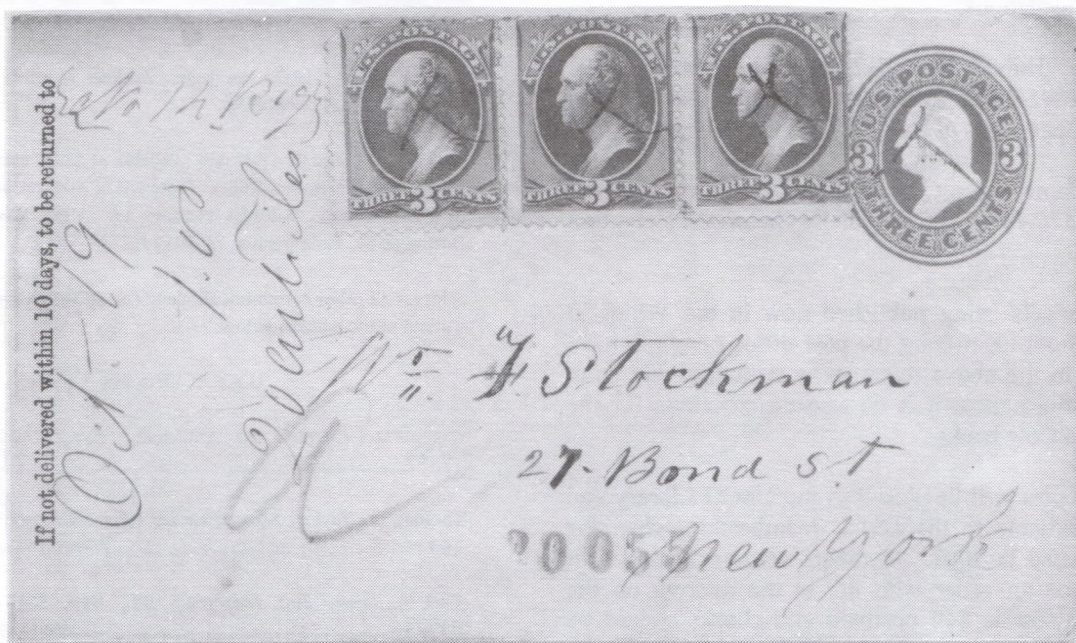 If not delivered within 10 days, to be returned to
Oct - 19
U.S. POSTAGE
3 THREE CENTS
U.S. POSTAGE
3 THREE CENTS
U.S. POSTAGE
3 THREE CENTS
U.S. POSTAGE
3 3
THREE CENTS
Wm F Stockman
27. Bond St
New York